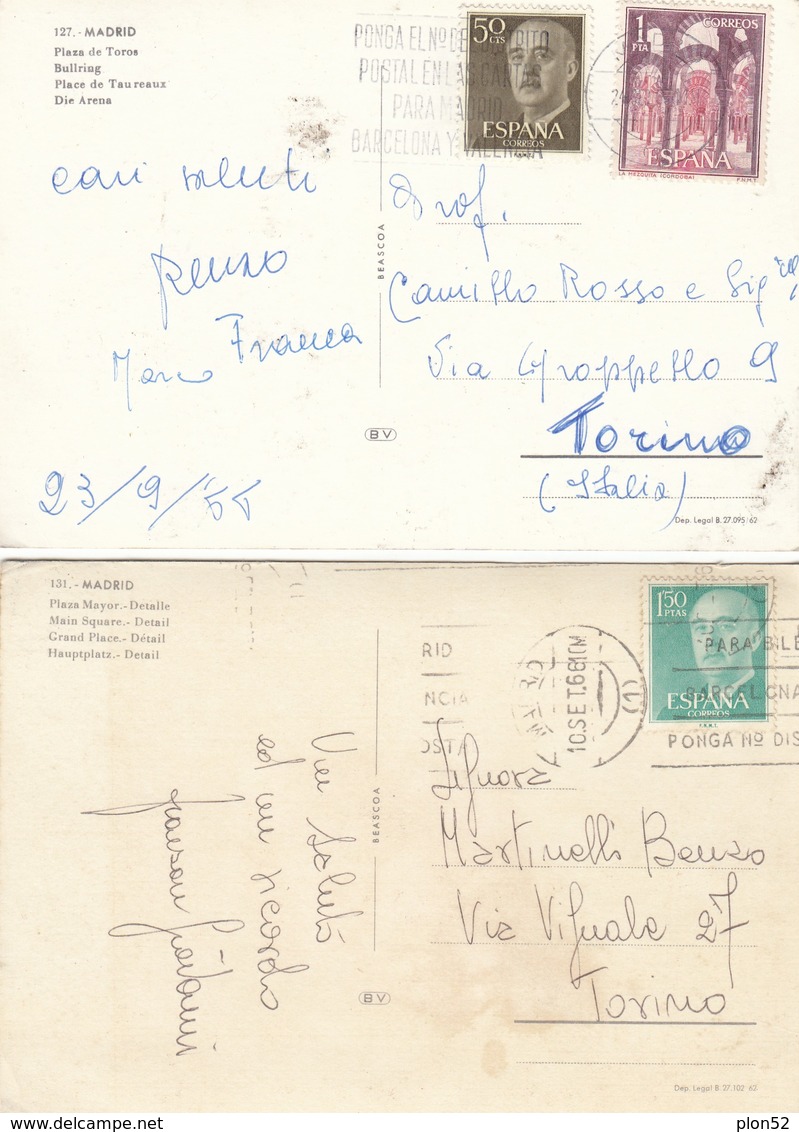 127.- MADRID
Plaza de Toros
Bullring
Place de Taureaux
Die Arena
PONGA EL Nº DE DISTRITO
POSTAL EN LAS CARTAS
PARA MADRID
BARCELONA Y VALENCIA
50
CTS
ESPAÑA
CORREOS
F.N.M.T.
1
PTA
CORREOS
ESPAÑA
LA MEZQUITA (CORDOBA)
F.N.M.T.
cari saluti
Renzo
Franca
Marco
23/9/
BEASCOA
BV
Prof.
Camillo Rosso e Sig
Via Groppello 9
Torino
(Italia)
Dep. Legal B. 27.095/62
131.- MADRID
Plaza Mayor.- Detalle
Main Square.- Detail
Grand Place.- Détail
Hauptplatz.- Detail
RID
NCIA
OSTA
MADRID
10.SET.66 10M
(1)
1'50
PTAS
ESPAÑA
CORREOS
F.N.M.T.
PARA BILB
BARCELONA
PONGA Nº DIS
ed un ricordo
BEASCOA
BV
Signora
Martinelli
Via Vignale 27
Torino
Dep. Legal B. 27.102/62
plon52